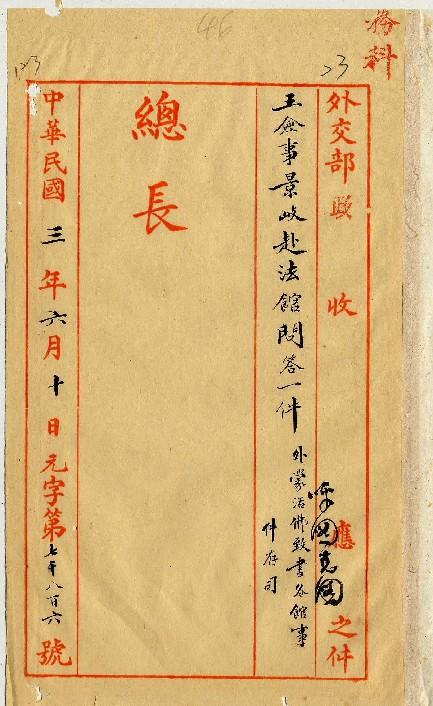 務科
46
23
外交部政收應之件
呼圖克圖
王僉事景岐赴法館問答一件
外蒙活佛致書各館事
件存司
總長
中華民國三年六月十日元字第七千八百六號